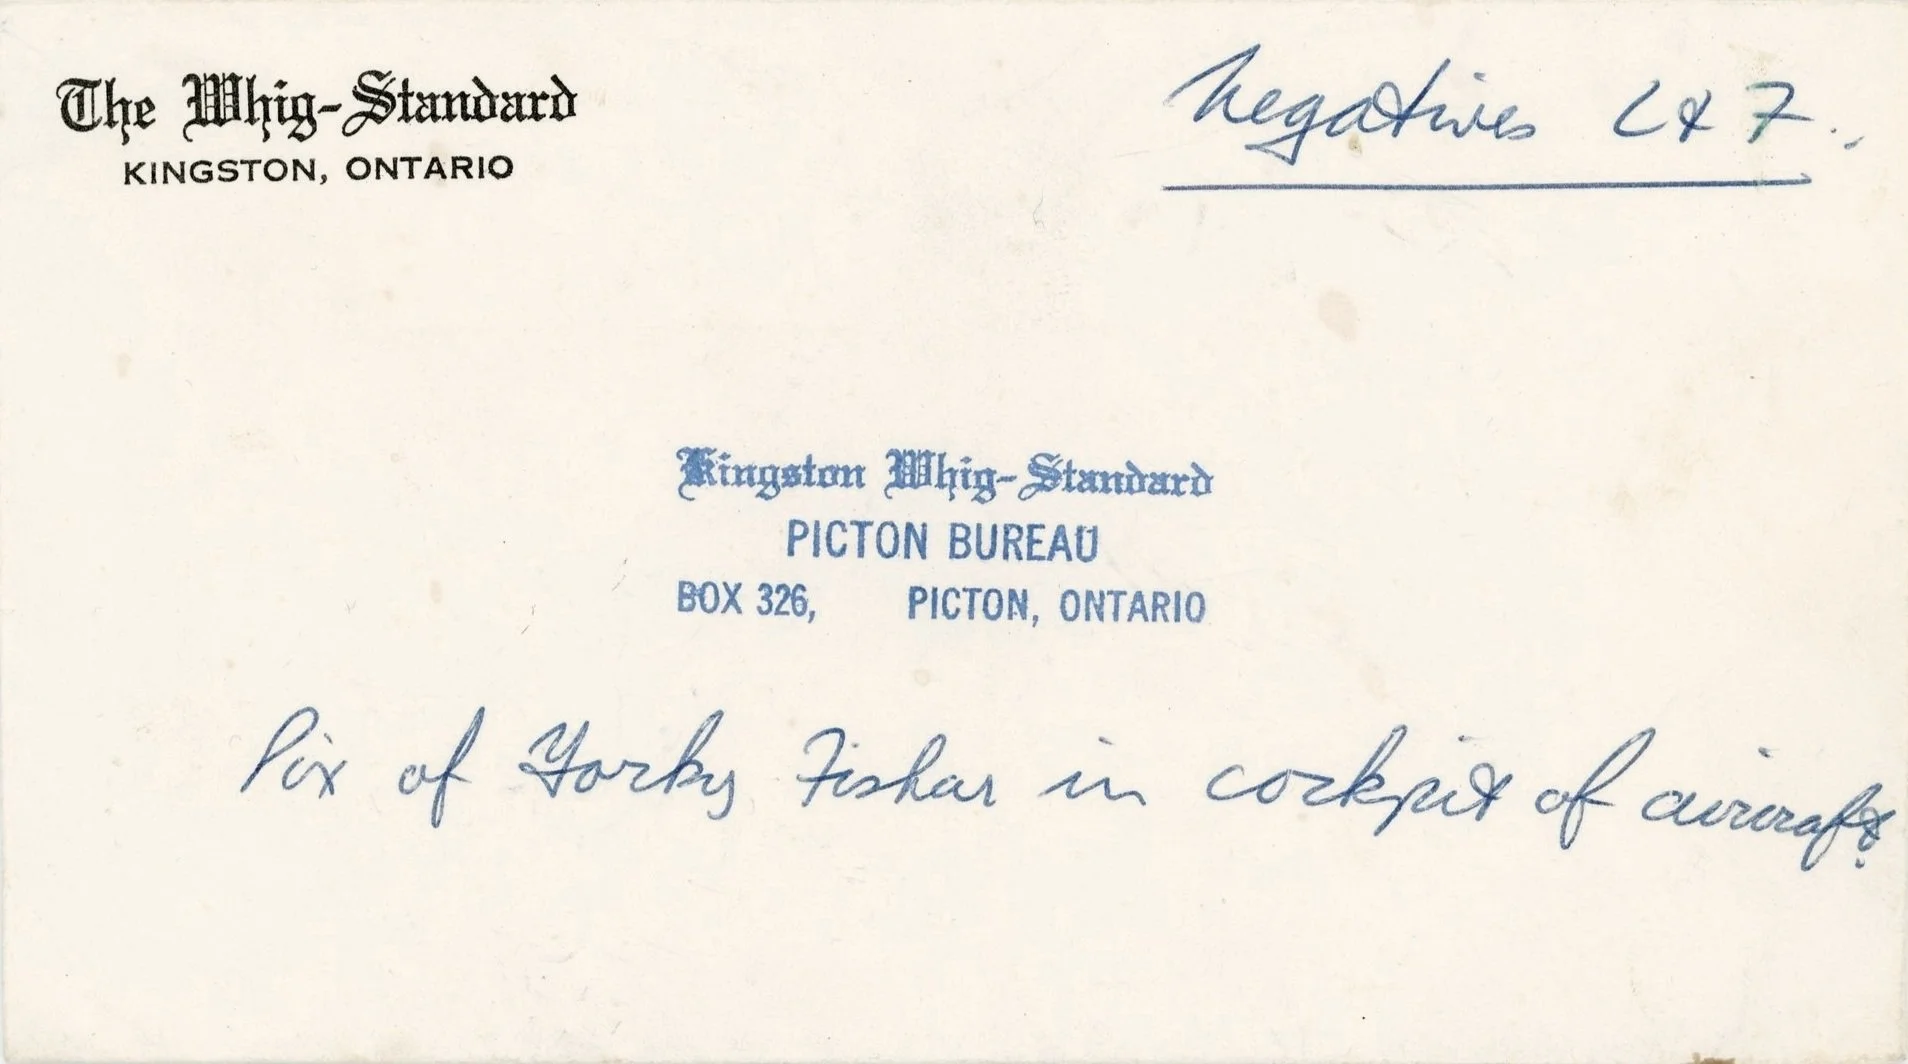 The Whig-Standard
KINGSTON, ONTARIO
Negatives L & F.
Kingston Whig-Standard
PICTON BUREAU
BOX 326, PICTON, ONTARIO
Pix of Yorky Fisher in cockpit of aircraft.